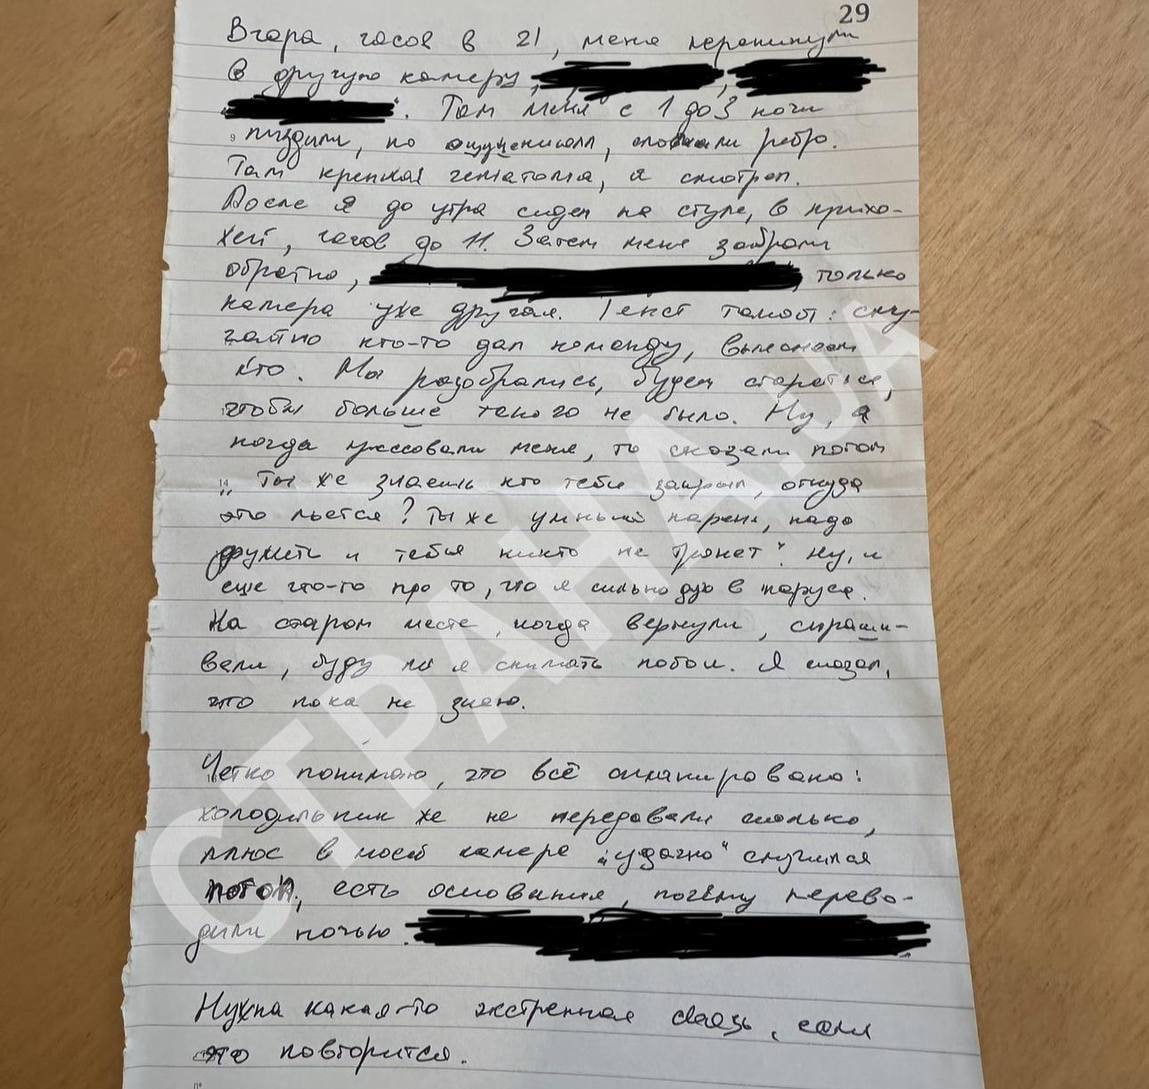 29
Вчера, часов в 21, меня перекинули
в другую камеру,
. Там меня с 1 до 3 ночи
пиздили, по ощущениям, сломали ребро.
Там крепкая гематома, я смотрел.
После я до утра сидел на стуле, в прихо-
жей, часов до 11. Затем меня забрали
обратно, только
камера уже другая. Текст такой: слу-
чайно кто-то дал команду, выясняем
кто. Мы разобрались, будем стараться,
чтобы больше такого не было. Ну, а
когда меня, то сказали потом
„Ты же знаешь кто тебя закрыл, откуда
это льется? Ты же умный парень, надо
дружить и тебя никто не тронет". Ну, и
еще что-то про то, что я сильно дую в паруса.
На старом месте, когда вернули, спраши-
вали, буду ли я снимать побои. Я сказал,
что пока не знаю.
Четко понимаю, что всё спланировано:
холодильник же не передавали сколько,
плюс в моей камере „удачно" случился
потоп, есть основания, почему перево-
дили ночью.
Нужна какая-то экстренная связь, если
это повторится.
СТРАНА.UA